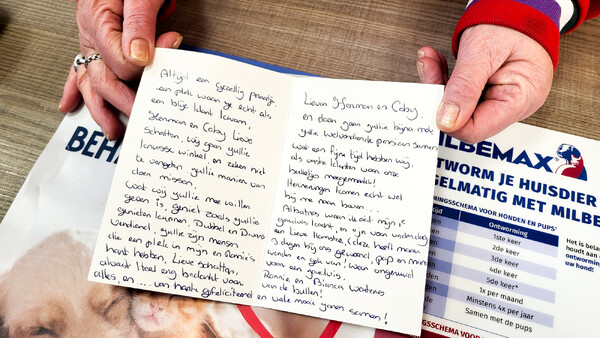 Altijd een gezellig praatje,
een plek waar je echt als
een blije klant kwam,
Hanman en Coby Lieve
Schatten, wij gaan jullie
winkel, en zeker niet
te vergeten, jullie manier van
doen missen.
Wat wij jullie mee willen
geven is, geniet zoals jullie
genieten kunnen, Dubbel en Dwars
Verdiend, jullie zijn mensen
die een plek in mijn en Ronnie's
hart hebben, Lieve Schatten,
heel erg bedankt voor
alles, en .... van harte gefeliciteerd en vele mooie jaren samen!
Lieve Hanman en Coby,
en daar gaan jullie bijna met
jullie welverdiende pensioen samen
wat een fijne tijd hebben wij
als vaste klanten voor onze
bulletjes meegemaakt!
Herinneringen komen echt wel
bij me naar boven...
Albatros waar ik ooit mijn 1e
vandaan
en Lieve Hamster,
3 dagen bij ons gewoond, pup en mama
werden en gek van! Weer ingeruild
voor een goudvis.
Ronnie en Bianca
van de bullen!
BEHA
MILBEMAX
ONTWORM JE HUISDIER
GELMATIG MET MILBE
RINGSSCHEMA VOOR HONDEN EN PUPS
Ontworming
1ste keer
2de keer
3de keer
4de keer
5de keer*
1x per maand
Minstens 4x per jaar
Samen met de pups
Het is belan
ontworming
uw hond!
INGSSCHEMA VOOR